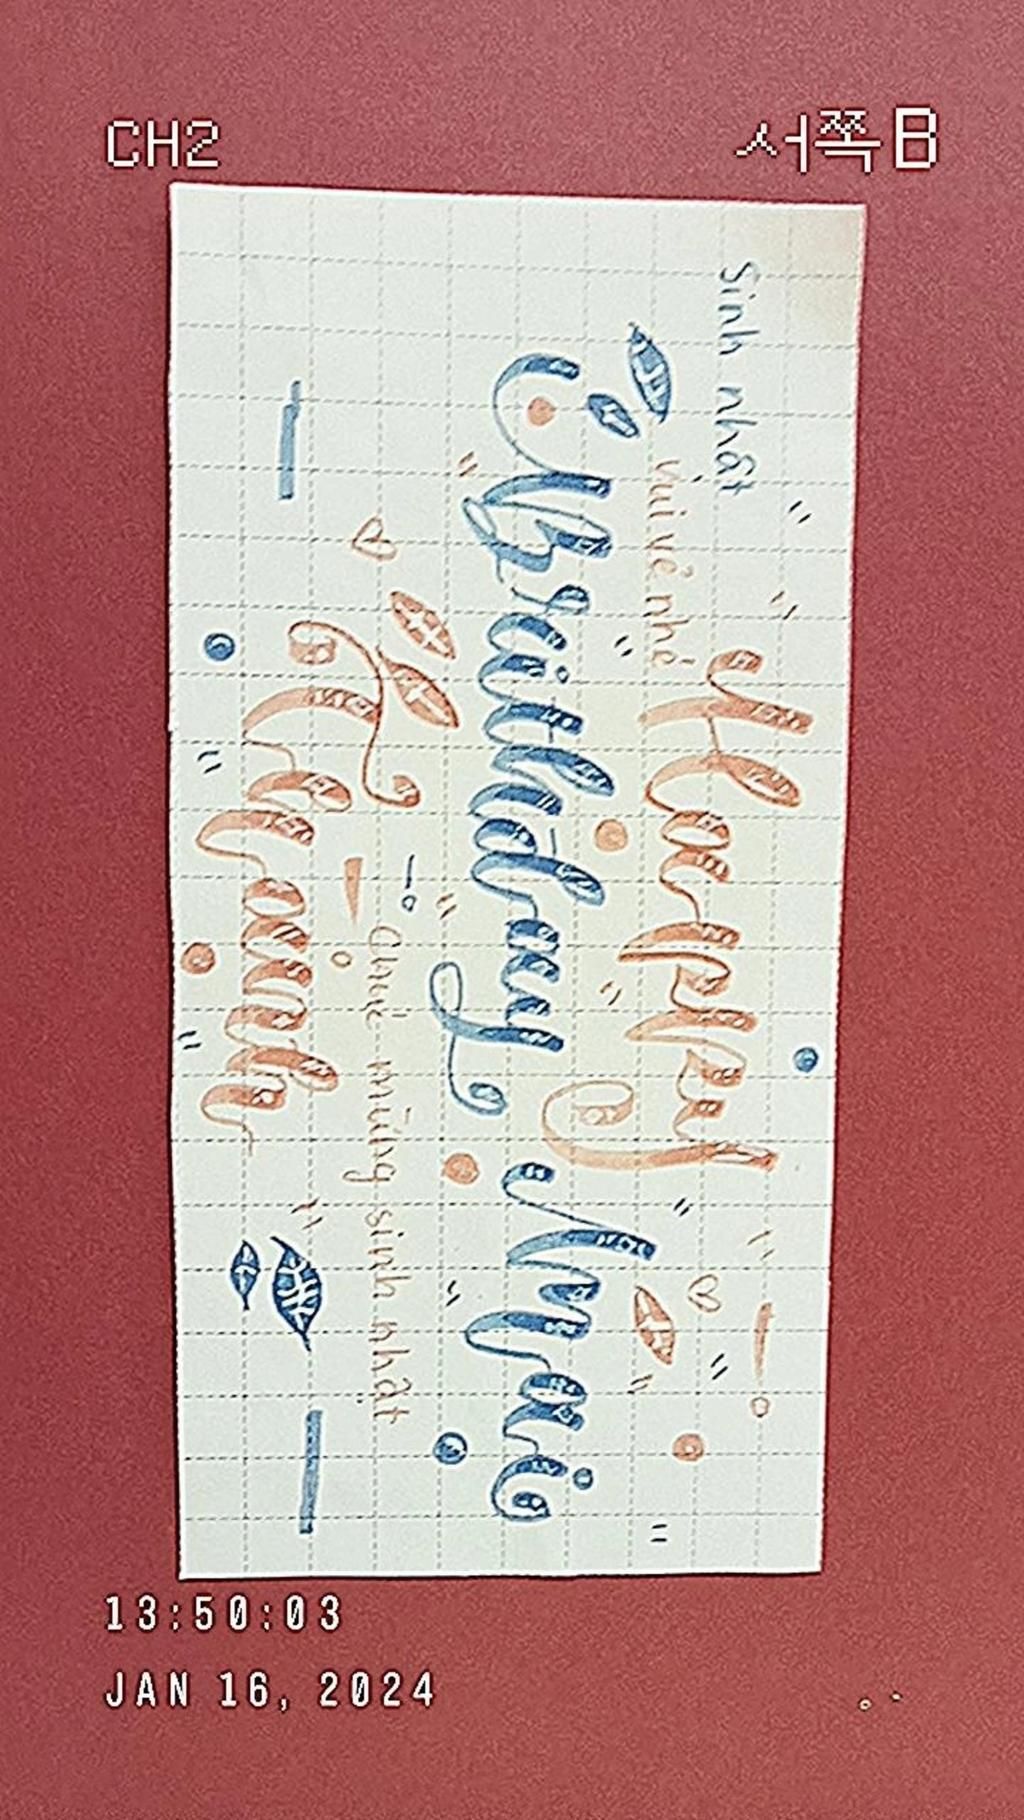 CH2
서쪽B
Sinh nhật
vui vẻ nhé
Happy
Birthday Mai
Chúc mừng sinh nhật
Thanh
13:50:03
JAN 16, 2024